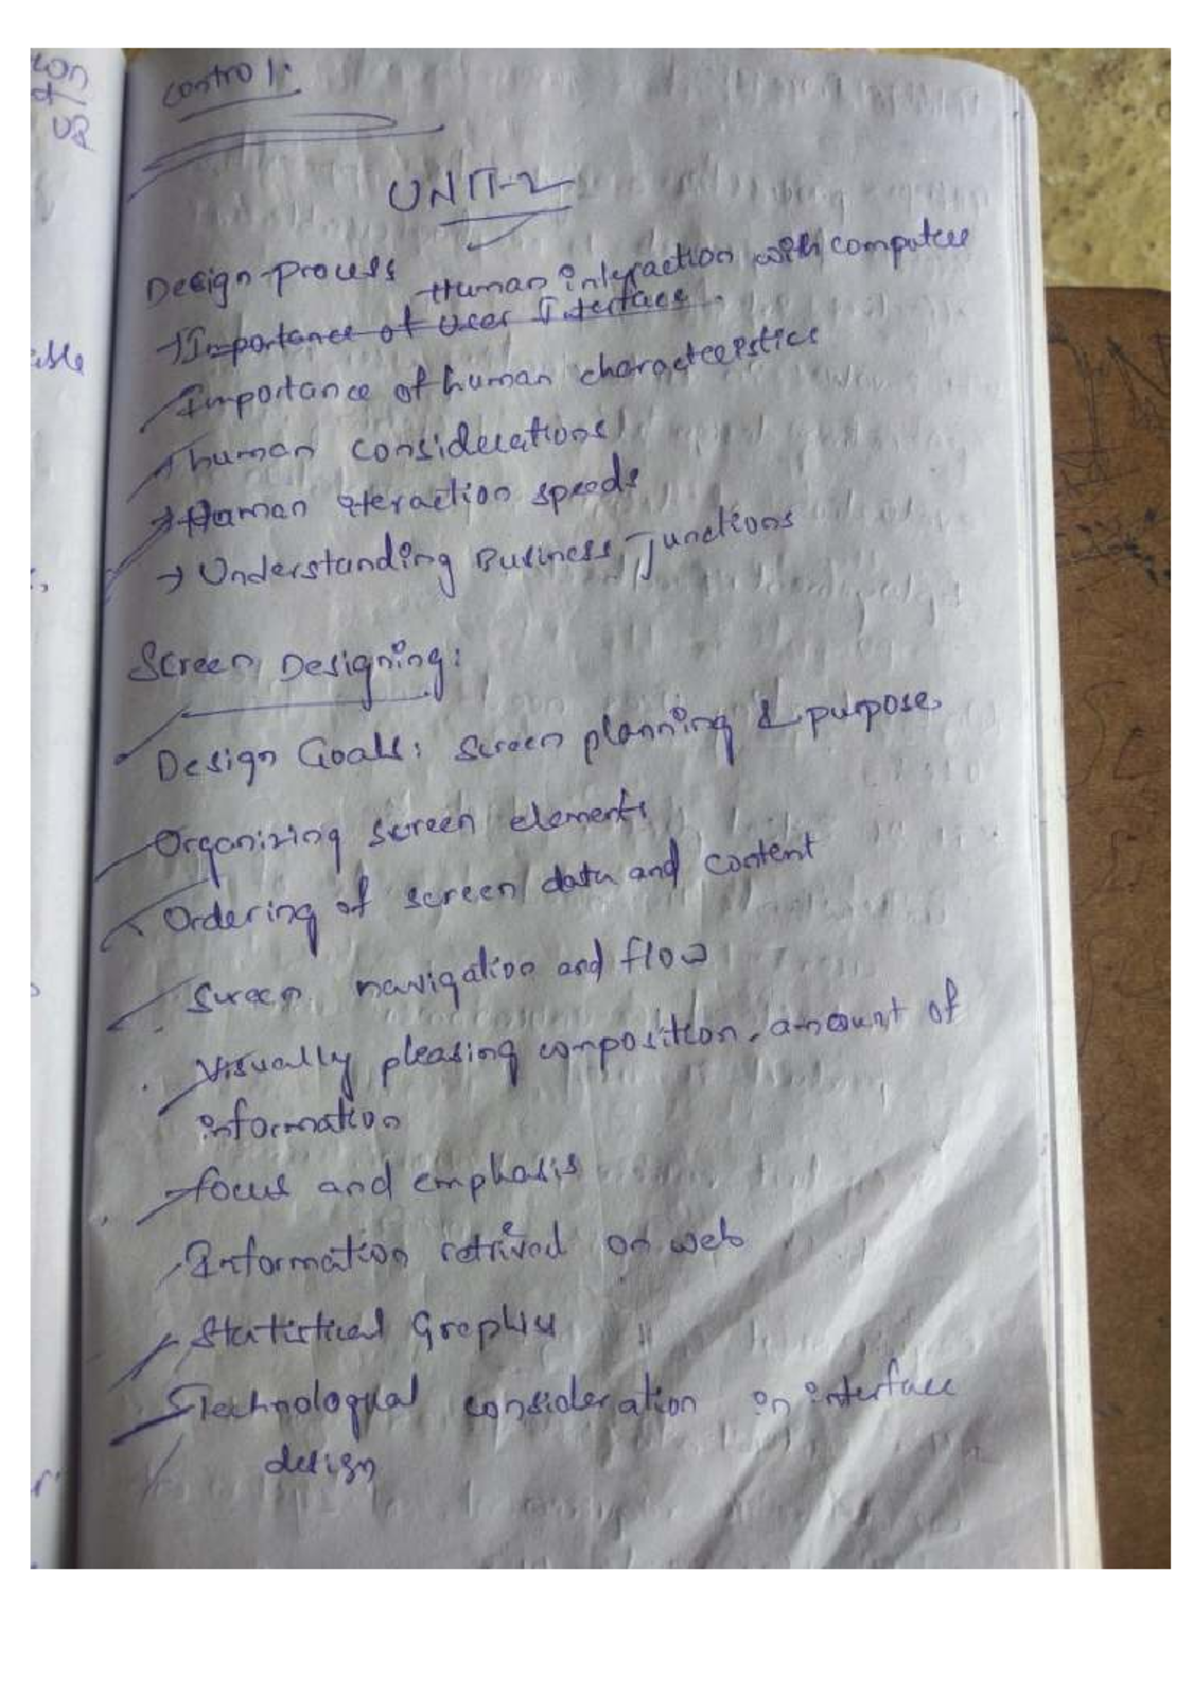 control:
UNIT-2
Design process Human interaction with computers
→ Importance of User Interface.
Importance of human characteristics
→ human considerations
→ Human iteraction speeds
→ Understanding Business Junctions
Screen Designing:
Design Goals: Screen planning & purpose.
Organizing screen elements
Ordering of screen data and content
Screen navigation and flow
Visually pleasing composition, amount of
information
focus and emphasis
Information retrived on web
Statistical Graphics
Technological consideration in interface
design